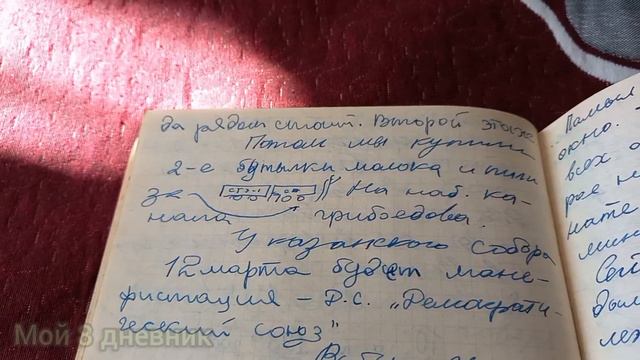 да рядом стоит. Второй этаж
Потом мы купили
2-е бутылки молока и пили
за На наб. ка-
нала грибоедова.
У казанского собора
12 марта будет мани-
фистация - Д.С. „Демократи-
ческий союз"
Помыл
окно.
всех
рое
нате
мин
Сей
был
Мой 3 дневник